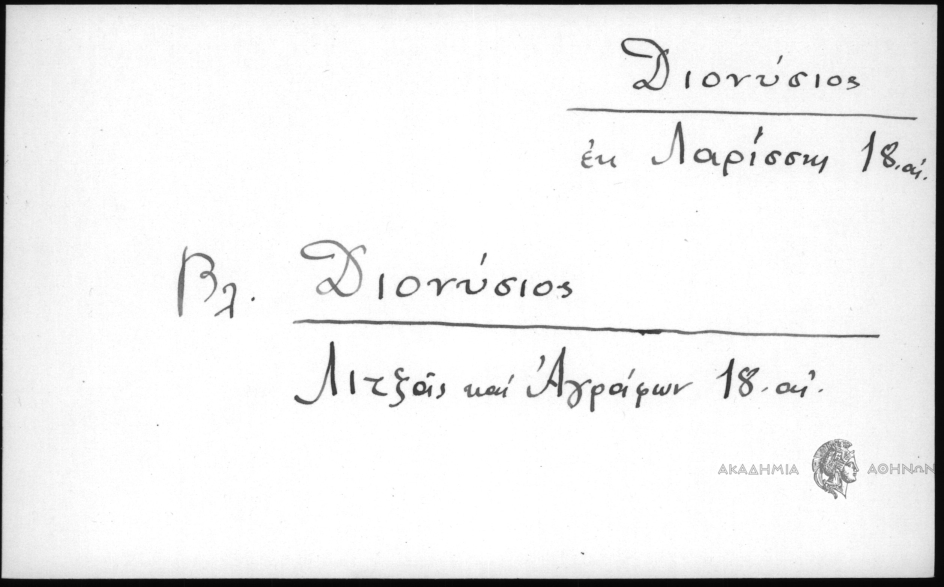 Διονύσιος
ἐκ Λαρίσσης 18. αἰ.
Βλ. Διονύσιος
Λιτζᾶς καί Ἀγράφων 18. αἰ.
ΑΚΑΔΗΜΙΑ ΑΘΗΝΩΝ